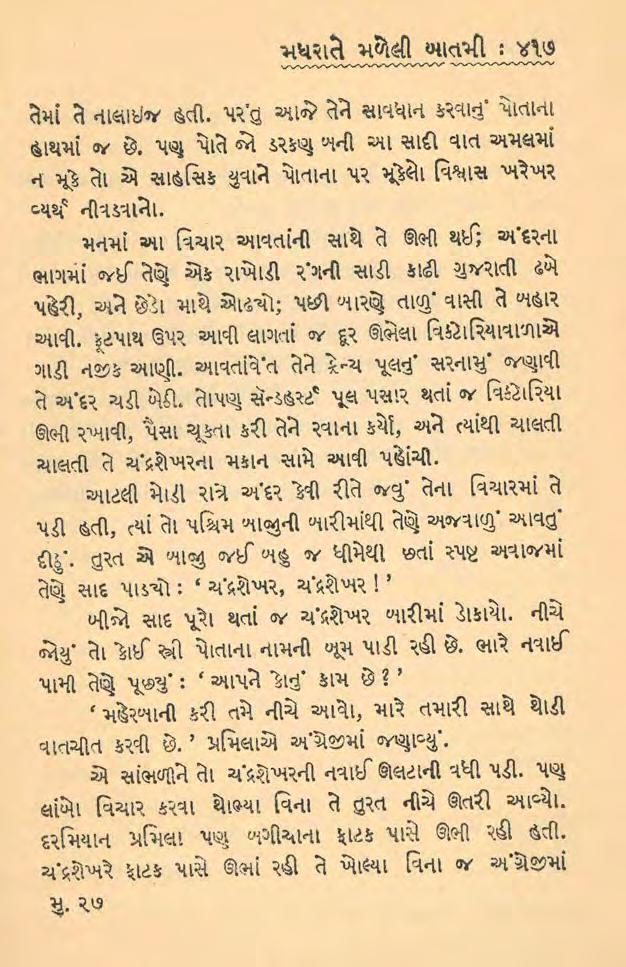 મધરાતે મળેલી બાતમી : ૪૧૭
તેમાં તે નાલાઇજ હતી. પરંતુ આજે તેને સાવધાન કરવાનું પોતાના
હાથમાં જ છે. પણ પોતે જો ડરકણ બની આ સાદી વાત અમલમાં
ન મૂકે તો એ સાહસિક યુવાને પોતાના પર મૂકેલો વિશ્વાસ ખરેખર
વ્યર્થ નીવડવાનો.
મનમાં આ વિચાર આવતાંની સાથે તે ઊભી થઈ; અંદરના
ભાગમાં જઈ તેણે એક રાખોડી રંગની સાડી કાઢી ગુજરાતી ઢબે
પહેરી, અને છેડો માથે ઓઢ્યો; પછી બારણે તાળું વાસી તે બહાર
આવી. ફૂટપાથ ઉપર આવી લાગતાં જ દૂર ઊભેલા વિક્ટોરિયાવાળાએ
ગાડી નજીક આણી. આવતાંવેંત તેને ફ્રેન્ચ પૂલનું સરનામું જણાવી
તે અંદર ચડી બેઠી. તોપણ સૅન્ડહર્સ્ટ પૂલ પસાર થતાં જ વિક્ટોરિયા
ઊભી રખાવી, પૈસા ચૂકતા કરી તેને રવાના કર્યો, અને ત્યાંથી ચાલતી
ચાલતી તે ચંદ્રશેખરના મકાન સામે આવી પહોંચી.
આટલી મોડી રાત્રે અંદર કેવી રીતે જવું તેના વિચારમાં તે
પડી હતી, ત્યાં તો પશ્ચિમ બાજુની બારીમાંથી તેણે અજવાળું આવતું
દીઠું. તુરત એ બાજુ જઈ બહુ જ ધીમેથી છતાં સ્પષ્ટ અવાજમાં
તેણે સાદ પાડ્યો : ‘ ચંદ્રશેખર, ચંદ્રશેખર ! ’
બીજો સાદ પૂરો થતાં જ ચંદ્રશેખર બારીમાં ડોકાયો. નીચે
જોયું તો કોઈ સ્ત્રી પોતાના નામની બૂમ પાડી રહી છે. ભારે નવાઈ
પામી તેણે પૂછ્યું : ‘ આપને કોનું કામ છે ? ’
‘ મહેરબાની કરી તમે નીચે આવો, મારે તમારી સાથે થોડી
વાતચીત કરવી છે. ’ પ્રમિલાએ અંગ્રેજીમાં જણાવ્યું.
એ સાંભળીને તો ચંદ્રશેખરની નવાઈ ઊલટાની વધી પડી. પણ
લાંબો વિચાર કરવા થોભ્યા વિના તે તુરત નીચે ઊતરી આવ્યો.
દરમિયાન પ્રમિલા પણ બગીચાના ફાટક પાસે ઊભી રહી હતી.
ચંદ્રશેખરે ફાટક પાસે ઊભાં રહી તે ખોલ્યા વિના જ અંગ્રેજીમાં
મુ. ૨૭